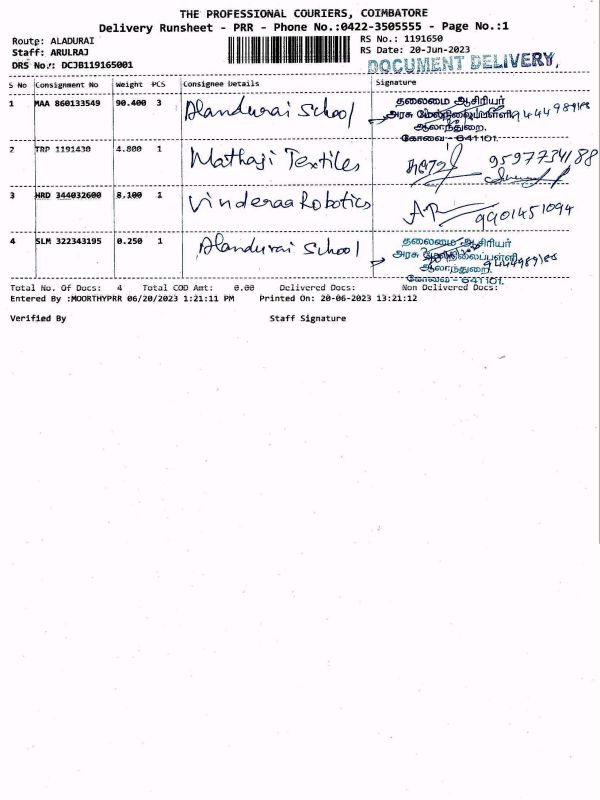 THE PROFESSIONAL COURIERS, COIMBATORE
Delivery Runsheet - PRR - Phone No.:0422-3505555 - Page No.:1
Route: ALADURAI
RS No.: 1191650
Staff: ARULRAJ
RS Date: 20-Jun-2023
DRS No.: DCJB119165001
DOCUMENT DELIVERY,
S No Consignment No Weight PCS Consignee Details Signature
1 MAA 860133549 90.400 3 Alandurai School
தலைமை ஆசிரியர்
அரசு மேல்நிலைப்பள்ளி
ஆலாந்துறை,
கோவை - 641 101.
2 TRP 1191430 4.800 1 Mathaji Textiles 9597734188
3 HRD 344032600 8.100 1 Vinderaa Robotics 9901451094
4 SLM 322343195 0.250 1 Alandurai School
தலைமை ஆசிரியர்
அரசு மேல்நிலைப்பள்ளி
ஆலாந்துறை,
கோவை - 641 101.
Total No. Of Docs: 4 Total COD Amt: 0.00 Delivered Docs: Non Delivered Docs:
Entered By :MOORTHYPRR 06/20/2023 1:21:11 PM Printed On: 20-06-2023 13:21:12
Verified By Staff Signature